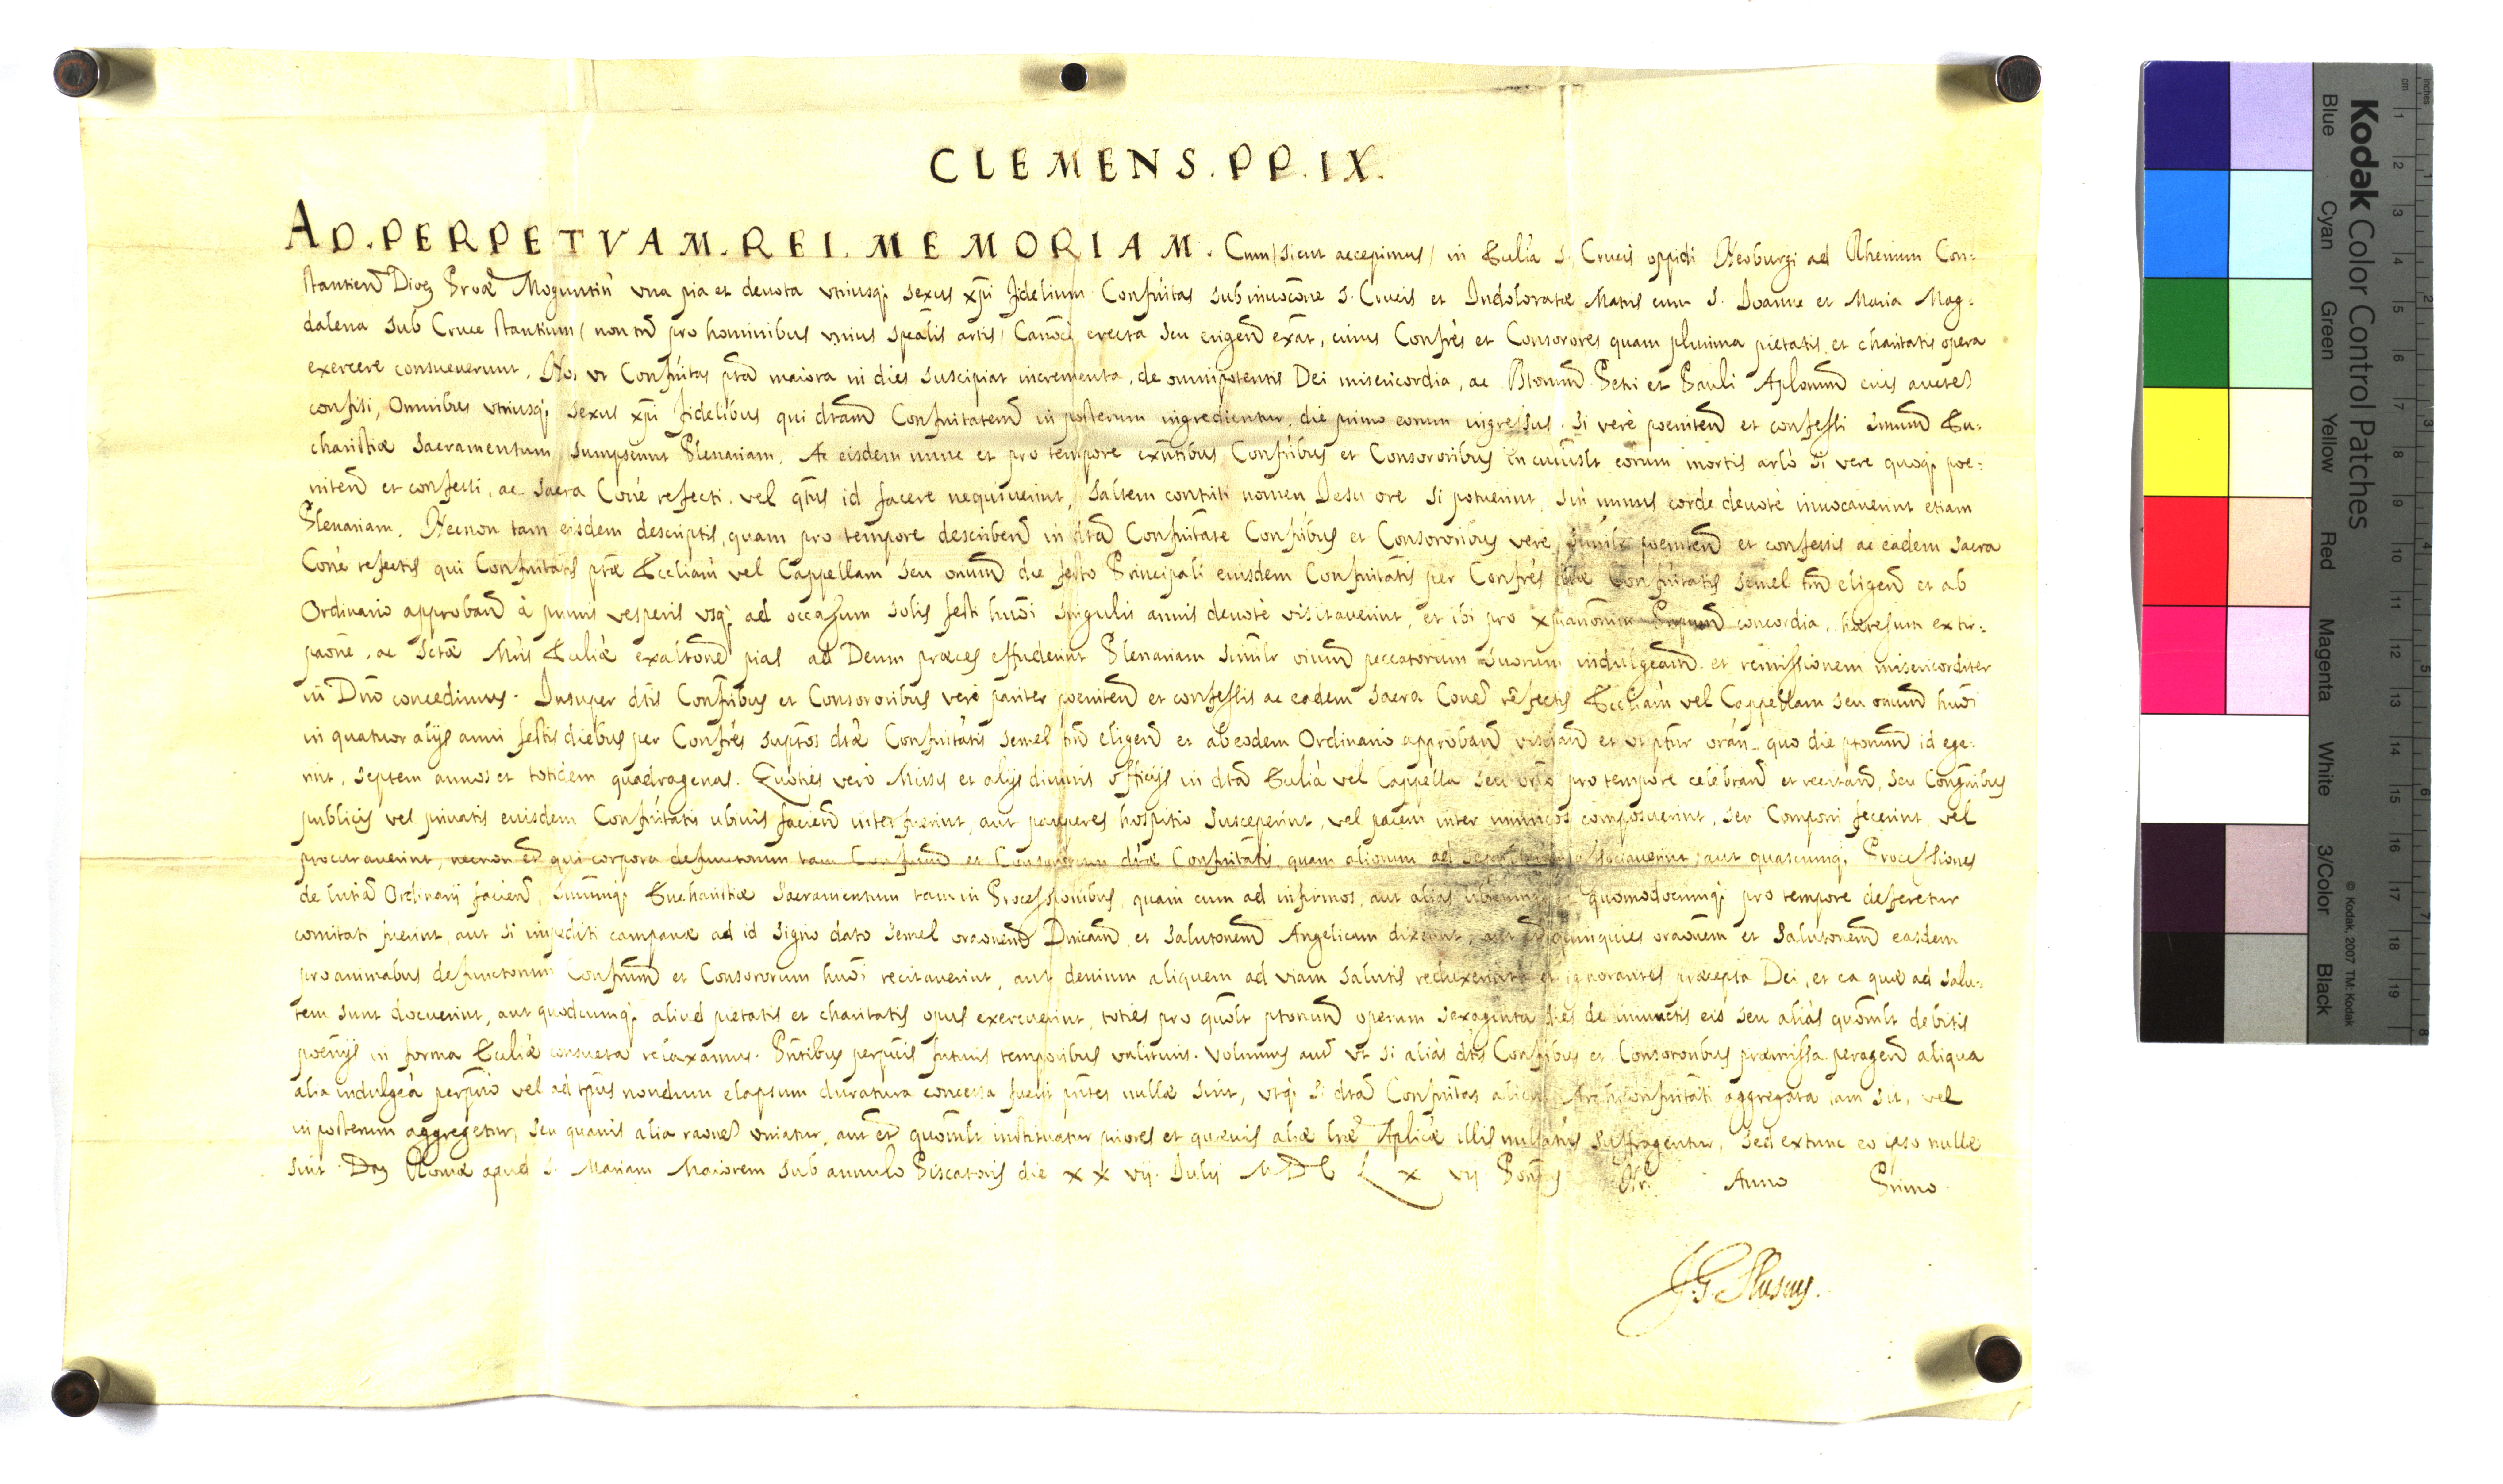 CLEMENS . PP . IX .
AD . PERPETVAM . REI . MEMORIAM . Cum / sicut accepimus / in Ecclia S. Crucis oppidi Neoburgi ad Rhenum Con=
stantien Dioc Prouae Moguntin vna pia et deuota vtriusq; sexus xpi fidelium Confritas sub inuocone S. Crucis et Indoloratae Matris cum S. Joanne et Maria Mag=
dalena sub Cruce stantium / non tn pro hominibus vnius spealis artis / Canoce erecta seu erigend exat, cuius Confres et Consorores quam plurima pietatis et charitatis opera
exercere consueuerunt. Nos vt Confritas pta maiora in dies suscipiat incrementa, de omnipotentis Dei misericordia, ac Btorum Petri et Pauli Aplorum eius aucte
confisi, Omnibus vtriusq; sexus xpi fidelibus qui dtam Confritatem in posterum ingredientur, die primo eorum ingressus, si verè poeniten et confessi Smum Eu=
charistiae Sacramentum sumpserint Plenariam. Ac eisdem nunc et pro tempore exntibus Confribus et Consororibus in cuiuslt eorum mortis arlo si vere quoq; poe=
niten et confessi, ac sacra Cone refecti, vel qtus id facere nequiuerint, saltem contriti nomen Jesu ore si potuerint, sin minus corde deuotè inuocauerint etiam
Plenariam. Necnon tam eisdem descriptis, quam pro tempore describen in dta Confritate Confribus et Consororibus vere similr poeniten et confessis ac eadem sacra
Cone refectis qui Confritatis ptae Eccliam vel Cappellam seu orium die festo Principali eiusdem Confritatis per Confres dtae Confritatis semel tn eligen et ab
Ordinario approban à primis vesperis vsq; ad occasum solis festi huoi singulis annis deuotè visitauerint, et ibi pro xpianorum Prpum concordia, haeresum extir=
paone, ac Sctae Mris Ecliae exaltone pias ad Deum praeces effuderint Plenariam similr oium peccatorum suorum indulgeam et remissionem misericorditer
in Dno concedimus. Insuper dtis Confribus et Consororibus verè pariter poeniten et confessis ac eadem sacra Cone refectis Eccliam vel Cappellam seu orium huoi
in quatuor alijs anni festis diebus per Confres suptos dtae Confritatis semel tn eligen et ab eodem Ordinario approban visitan et vt ptur oran.. quo die ptorum id ege=
rint, septem annos et totidem quadragenas. Quoties verò Missis et alijs diuinis officijs in dta Ecclia vel Cappella seu orio pro tempore celebran et recitan, seu Congnibus
publicis vel priuatis eiusdem Confritatis ubiuis facien interfuerint, aut pauperes hospitio susceperint, vel pacem inter inimicos composuerint, seu componi fecerint, vel
procurauerint, necnon et qui corpora defunctorum tam Confrum et Consororum dtae Confritatis, quam aliorum ad sepulturam associauerint, aut quascunq; Processiones
de lntia Ordinarij facien, Smumq; Eucharistiae Sacramentum tam in Processionibus, quam cum ad infirmos, aut alias ubicunq; et quomodocunq; pro tempore deferetur
comitati fuerint, aut si impediti campanae ad id signo dato semel oraonem Dnicam, et Salutonem Angelicam dixerint, aut et quinquies oraonem et Salutonem easdem
pro animabus defunctorum Confrum et Consororum huoi recitauerint, aut deuium aliquem ad viam salutis reduxerint, et ignorantes praecepta Dei, et ea quae ad salu=
tem sunt docuerint, aut quodcunq; aliud pietatis et charitatis opus exercuerint, toties pro quolt ptorum operum sexaginta dies de iniunctis eis seu aliàs quomlt debitis
poenijs in forma Ecliae consueta relaxamus. Pntibus perpuis futuris temporibus valituris. Volumus aut vt si aliàs dtis Confribus et Consororibus praemissa peragen aliqua
alia indulgea perpuo vel ad tpus nondum elapsum duratura concessa fuerit pntes nullae sint, vtq; si dta Confritas alicui Archiconfritati aggregata iam sit, vel
in posterum aggregetur, seu quauis alia raone vniatur, aut et quomlt instituatur priores et quaeuis aliae lrae Aplicae illis nullatns suffragentur, sed extunc eo ipso nullae
sint. Dat Romae apud S. Mariam Maiorem sub annulo Piscatoris die XXvij. Julij MDCLXvij Pontus Nri Anno Primo
J. G. Slusius.